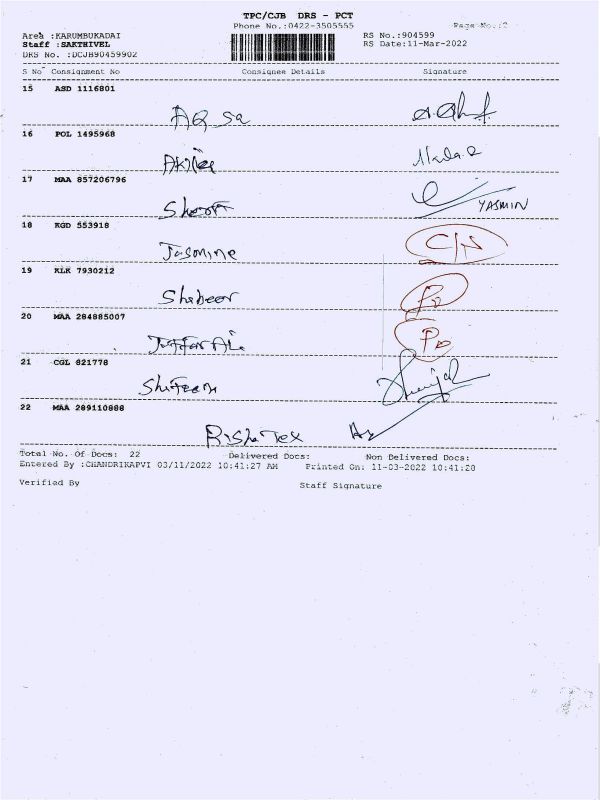 TPC/CJB DRS - PCT
Phone No.:0422-3505555 Page No.:2
Area :KARUMBUKADAI RS No.:904599
Staff :SAKTHIVEL RS Date:11-Mar-2022
DRS No. :DCJB90459902
S No Consignment No Consignee Details Signature
15 ASD 1116801
AQ Sa
16 POL 1495968
17 MAA 857206796
YASMIN
18 KGD 553918
Jasmine C/N
19 KLK 7930212
Shabeer
20 MAA 284885007
21 CGL 821778
22 MAA 289110888
Risha Tex
Total No. Of Docs: 22 Delivered Docs: Non Delivered Docs:
Entered By :CHANDRIKAPVI 03/11/2022 10:41:27 AM Printed On: 11-03-2022 10:41:28
Verified By Staff Signature